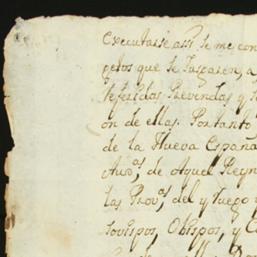 executasse assi se me con
petos que se tassasen, a
referidas Prevendas y s
on de ellas. Portanto
de la Nueva España
Aud.as de aquel Reyn
las Prov.as del y luego
zovispos, Obispos, y C